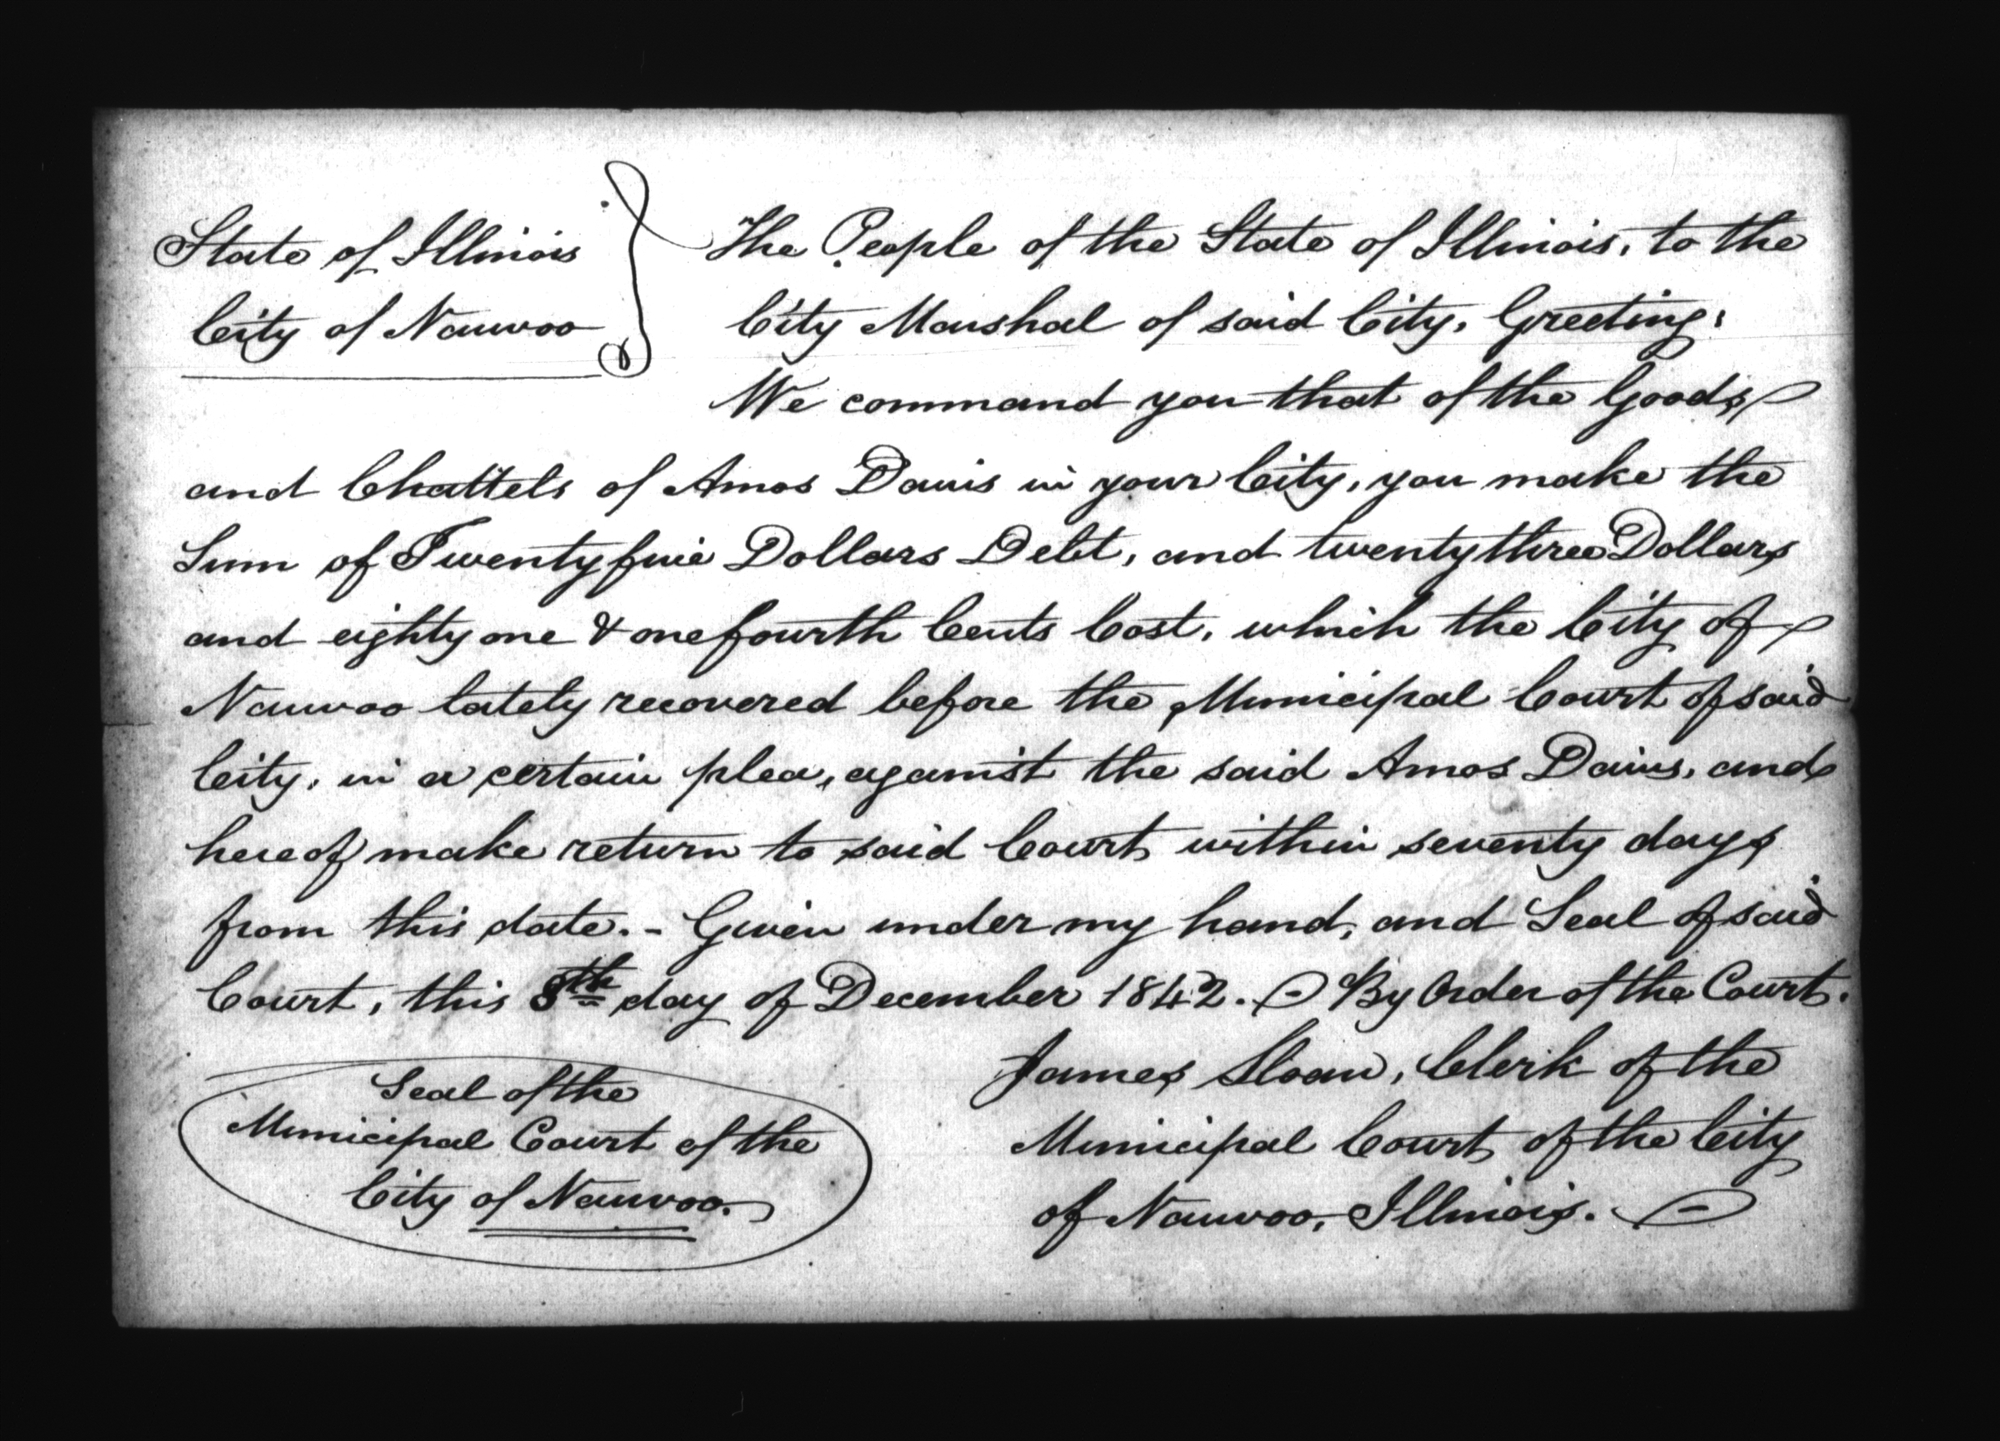 State of Illinois
City of Nauvoo
The People of the State of Illinois, to the
City Marshal of said City, Greeting;
We command you that of the Goods
and Chattels of Amos Davis in your City, you make the
Sum of Twentyfive Dollars Debt, and twentythree Dollars
and eighty one & one fourth Cents Cost, which the City of
Nauvoo lately recovered before the Municipal Court of said
City, in a certain plea, against the said Amos Davis, and
hereof make return to said Court within seventy days
from this date. - Given under my hand, and Seal of said
Court, this 8th day of December 1842. By Order of the Court.
James Sloan, Clerk of the
Municipal Court of the City
of Nauvoo, Illinois.
Seal of the
Municipal Court of the
City of Nauvoo.